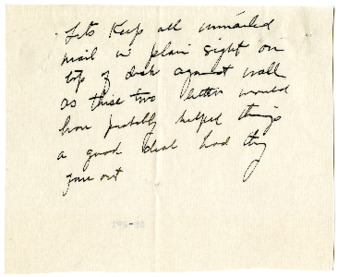 Lets Keep all unmailed
mail in plain sight on
top of desk against wall
as these two letters would
have probably helped things
a good deal had they
gone out